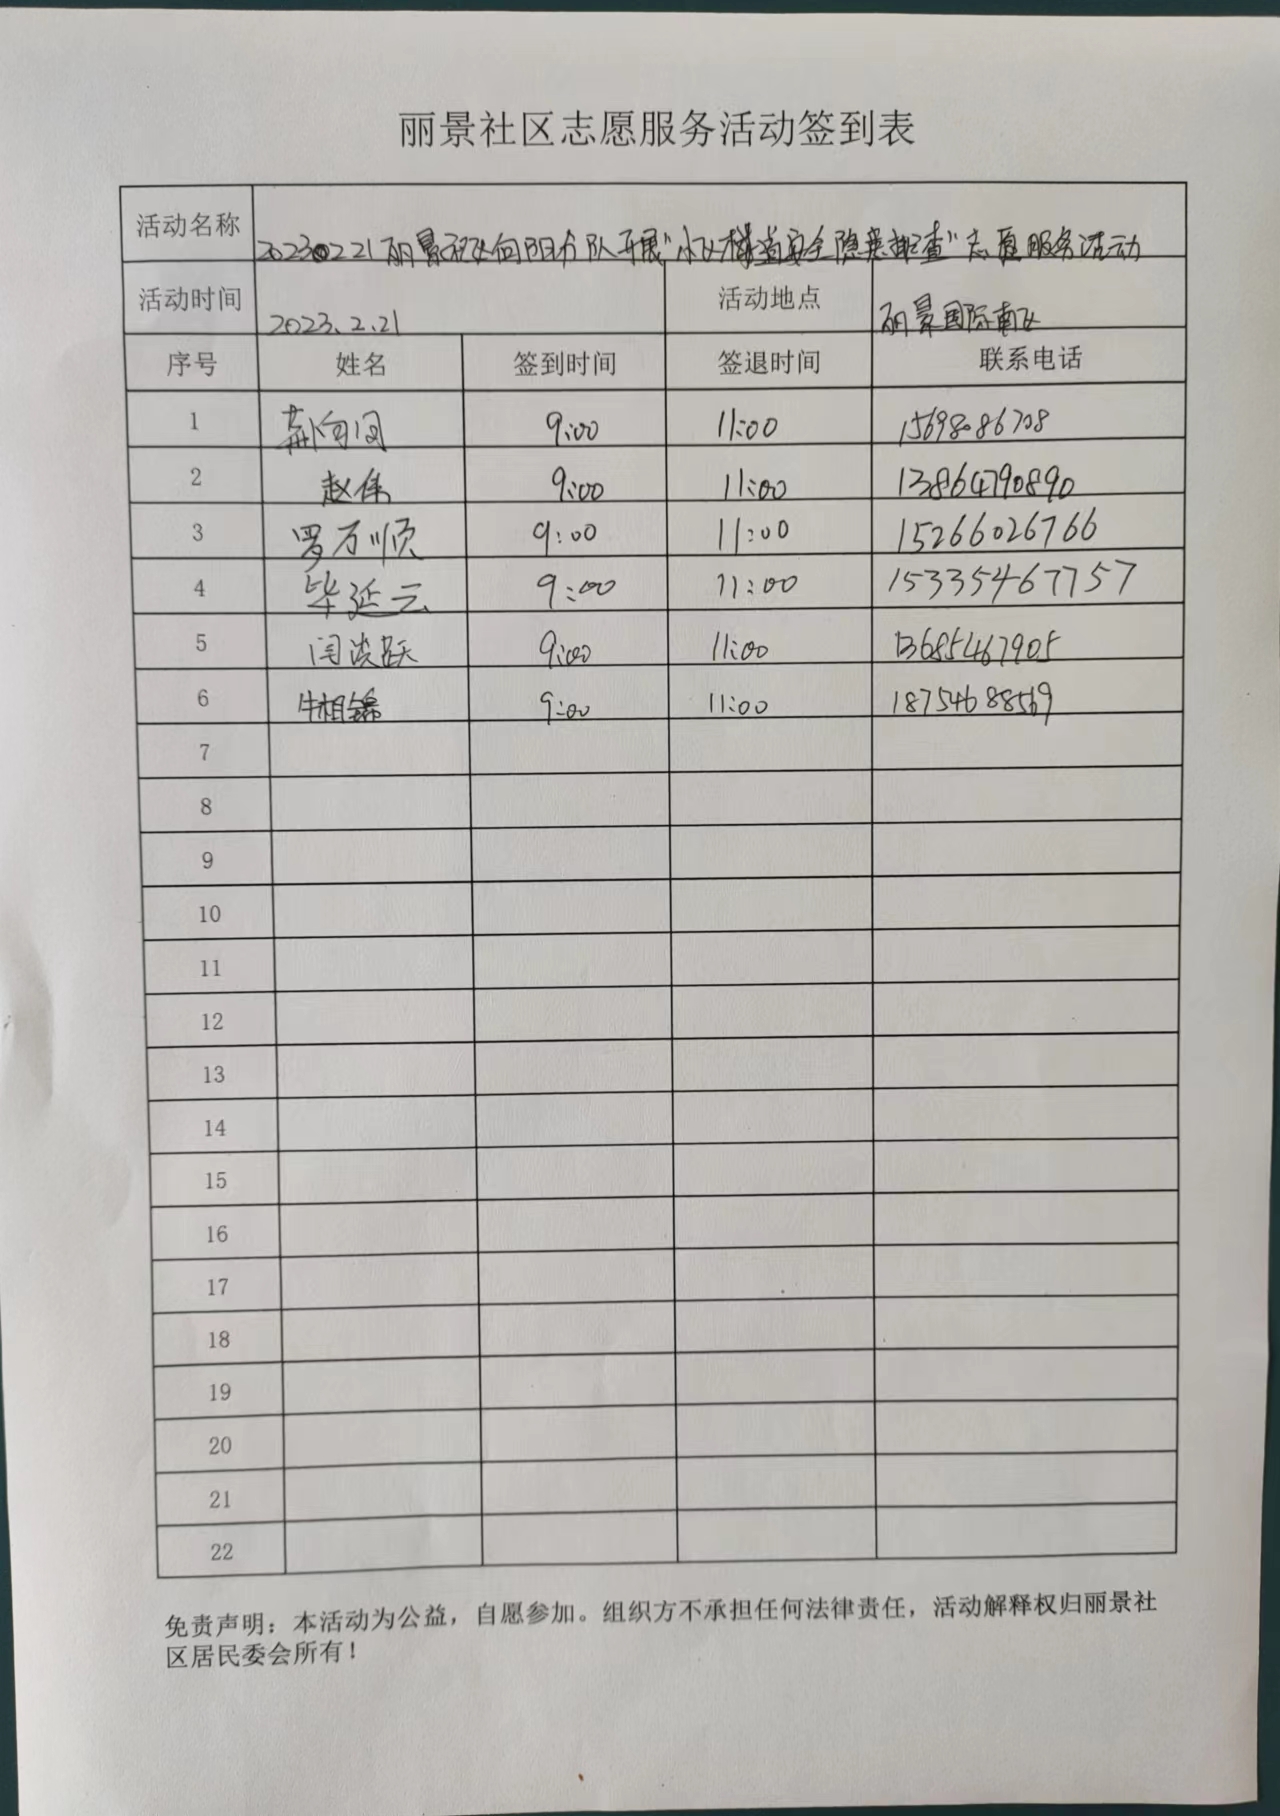 丽景社区志愿服务活动签到表
活动名称 20230221丽景社区向阳分队开展"小区楼道安全隐患排查"志愿服务活动
活动时间 2023.2.21 活动地点 丽景国际南区
序号 姓名 签到时间 签退时间 联系电话
1 9:00 11:00 15698086708
2 赵伟 9:00 11:00 13864790890
3 罗万顺 9:00 11:00 15266026766
4 毕延云 9:00 11:00 15335467757
5 9:00 11:00 13685467905
6 牛相锦 9:00 11:00 18754688569
7
8
9
10
11
12
13
14
15
16
17
18
19
20
21
22
免责声明：本活动为公益，自愿参加。组织方不承担任何法律责任，活动解释权归丽景社
区居民委会所有！